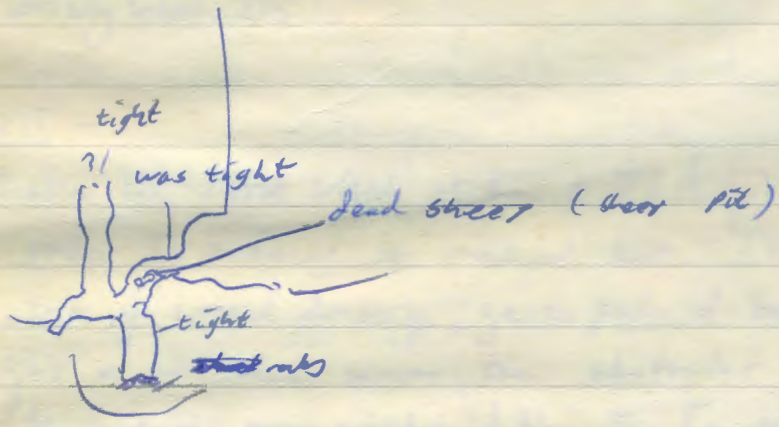 tight
?!
was tight
dead sheep (sheep pit)
tight
rocks